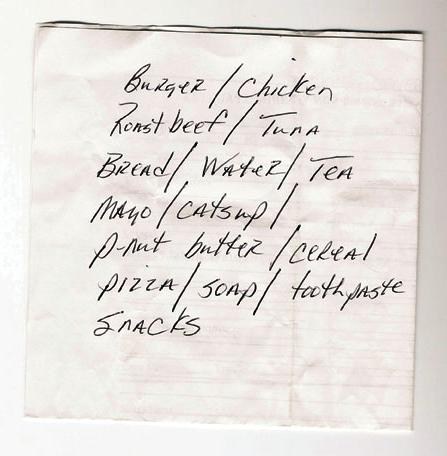 Burger / Chicken
Roast beef / Tuna
Bread / Water / Tea
Mayo / Catsup /
p-nut butter / cereal
pizza / soap / toothpaste
snacks